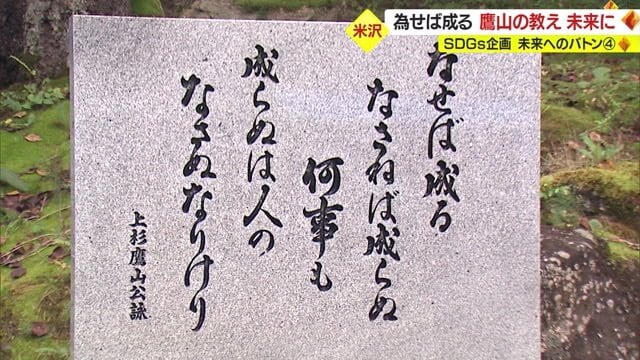 米沢
為せば成る 鷹山の教え 未来に
SDGs企画 未来へのバトン④
なせば成る
なさねば成らぬ
何事も
成らぬは人の
なさぬなりけり
上杉鷹山公詠